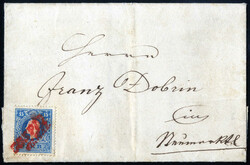 Herrn
Franz Dobrin
in
Neumarktl